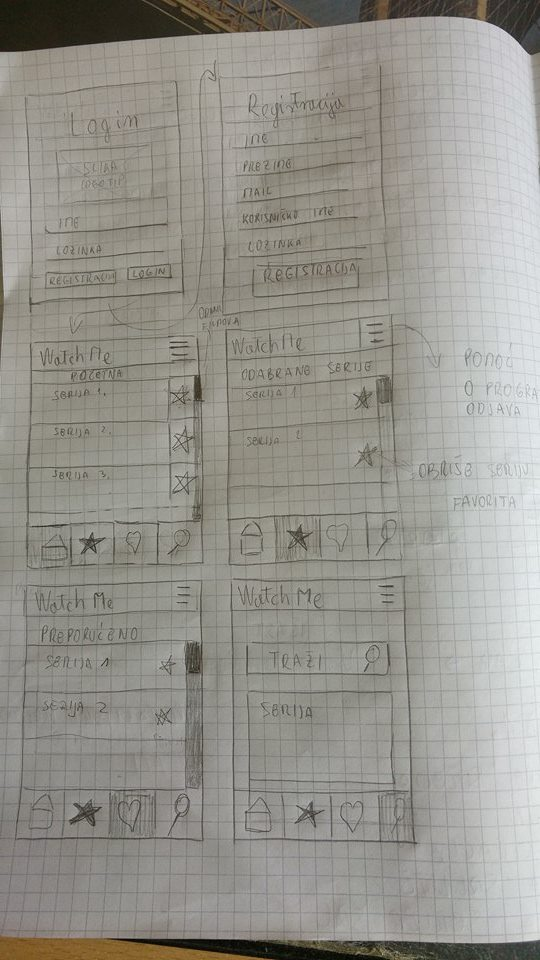 Login
SLIKA
LOGOTIP
IME
LOZINKA
REGISTRACIJA LOGIN
Registracija
IME
PREZIME
MAIL
KORISNIČKO IME
LOZINKA
REGISTRACIJA
WatchMe
POČETNA
SERIJA 1.
SERIJA 2.
SERIJA 3.
WatchMe
ODABRANE SERIJE
SERIJA 1
SERIJA 2
POMOĆ
O PROGRA
ODJAVA
OBRIŠE SERIJU
FAVORITA
WatchMe
PREPORUČENO
SERIJA 1
SERIJA 2
WatchMe
TRAŽI
SERIJA